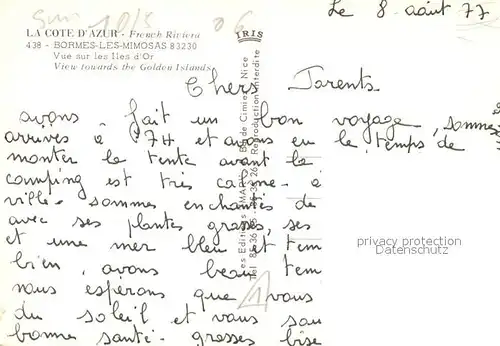 Le 8 août 77
10/5
06
LA COTE D'AZUR - French Riviera
438 - BORMES-LES-MIMOSAS 83230
Vue sur les Iles d'Or
View towards the Golden Islands
IRIS
Reproduction interdite
Chers Parents
avons fait un bon voyage, sommes
arrivés à 17H et avons eu le temps de
monter la tente avant la
camping est très calme - a
ville - sommes enchantés de
avec ses plantes grasses, ses
et une mer bleu et tem
bien, avons beau tem
nous espérons que vous
du soleil et vous sou
bonne santé - grosses bise
privacy protection
Datenschutz